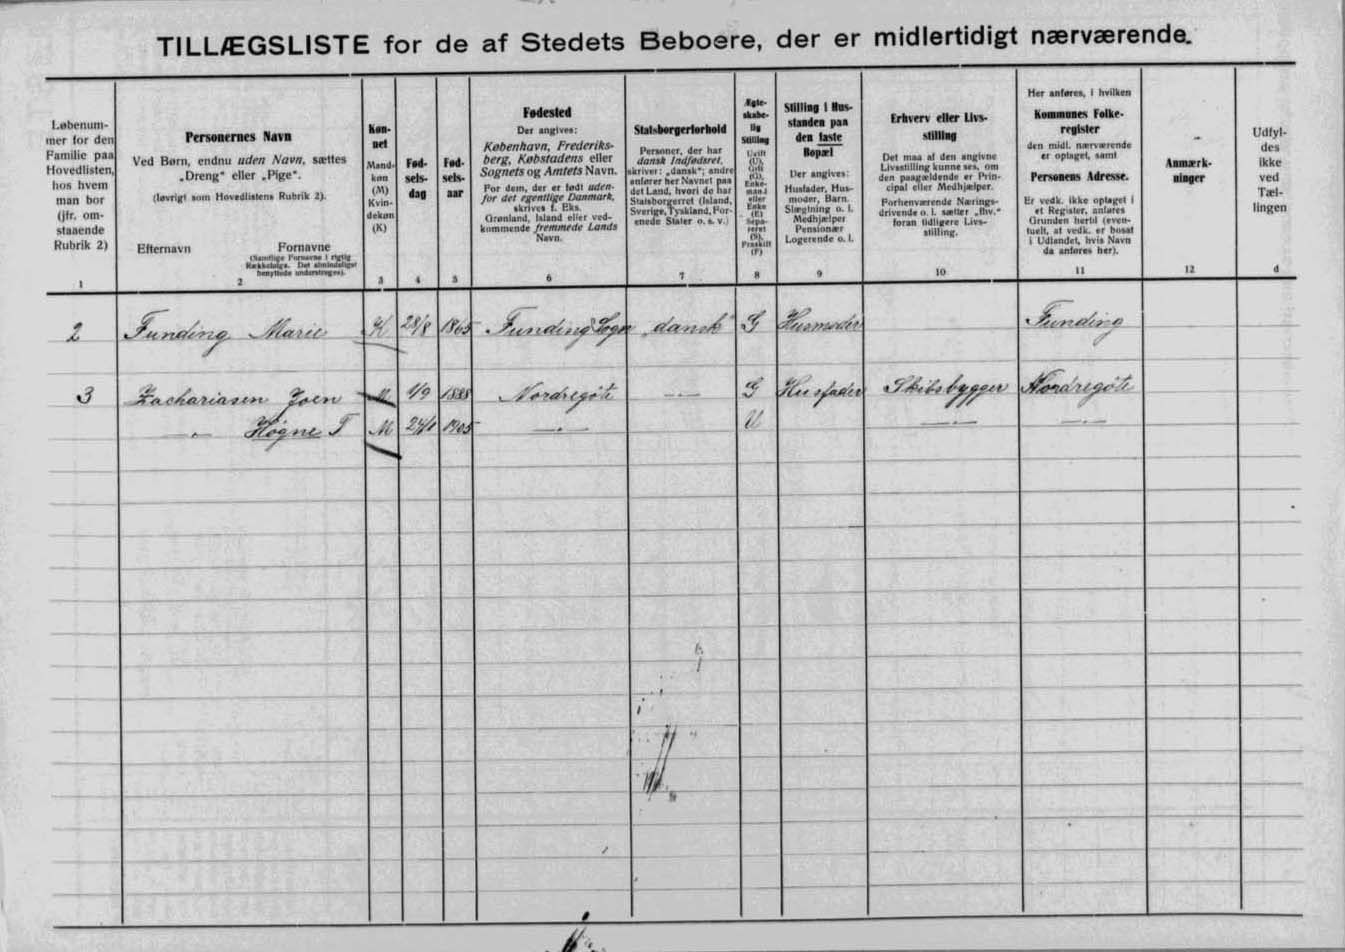 TILLÆGSLISTE for de af Stedets Beboere, der er midlertidigt nærværende.
Løbenum-
mer for den
Familie paa
Hovedlisten,
hos hvem
man bor
(jfr. om-
staaende
Rubrik 2)
1
Personernes Navn
Ved Børn, endnu uden Navn, sættes
„Dreng“ eller „Pige“.
(Iøvrigt som Hovedlistens Rubrik 2).
Efternavn Fornavne
(Samtlige Fornavne i rigtig
Rækkefølge. Det almindeligst
benyttede understreges).
2
Køn-
net
Mand-
køn
(M)
Kvin-
dekøn
(K)
3
Fød-
sels-
dag
4
Fød-
sels-
aar
5
Fødested
Der angives:
København, Frederiks-
berg, Købstadens eller
Sognets og Amtets Navn.
For dem, der er født uden-
for det egentlige Danmark,
skrives f. Eks.
Grønland, Island eller ved-
kommende fremmede Lands
Navn.
6
Statsborgerforhold
Personer, der har
dansk Indfødsret,
skriver: „dansk“; andre
anfører her Navnet paa
det Land, hvori de har
Statsborgerret (Island,
Sverige, Tyskland, For-
enede Stater o. s. v.)
7
Ægte-
skabe-
lig
Stilling
Ugift
(U),
Gift
(G),
Enke-
mand
eller
Enke
(E)
Sepa-
reret
(S),
Fraskilt
(F)
8
Stilling i Hus-
standen paa
den faste
Bopæl
Der angives:
Husfader, Hus-
moder, Barn.
Slægtning o. l.
Medhjælper
Pensionær
Logerende o. l.
9
Erhverv eller Livs-
stilling
Det maa af den angivne
Livsstilling kunne ses, om
den paagældende er Prin-
cipal eller Medhjælper.
Forhenværende Nærings-
drivende o. l. sætter „fhv.“
foran tidligere Livs-
stilling.
10
Her anføres, i hvilken
Kommunes Folke-
register
den midl. nærværende
er optaget, samt
Personens Adresse.
Er vedk. ikke optaget i
et Register, anføres
Grunden hertil (even-
tuelt, at vedk. er bosat
i Udlandet, hvis Navn
da anføres her).
11
Anmærk-
ninger
12
Udfyl-
des
ikke
ved
Tæl-
lingen
d
2 Funding Marie K 28/8 1865 Fundings Sogn „dansk“ G Husmoder Funding
3 Zachariasen Joen M 1/9 1888 Nordregöte — „ — G Husfader Skibsbygger Nordregöte
— „ — Høgne T M 1905 — „ — U — „ — — „ —